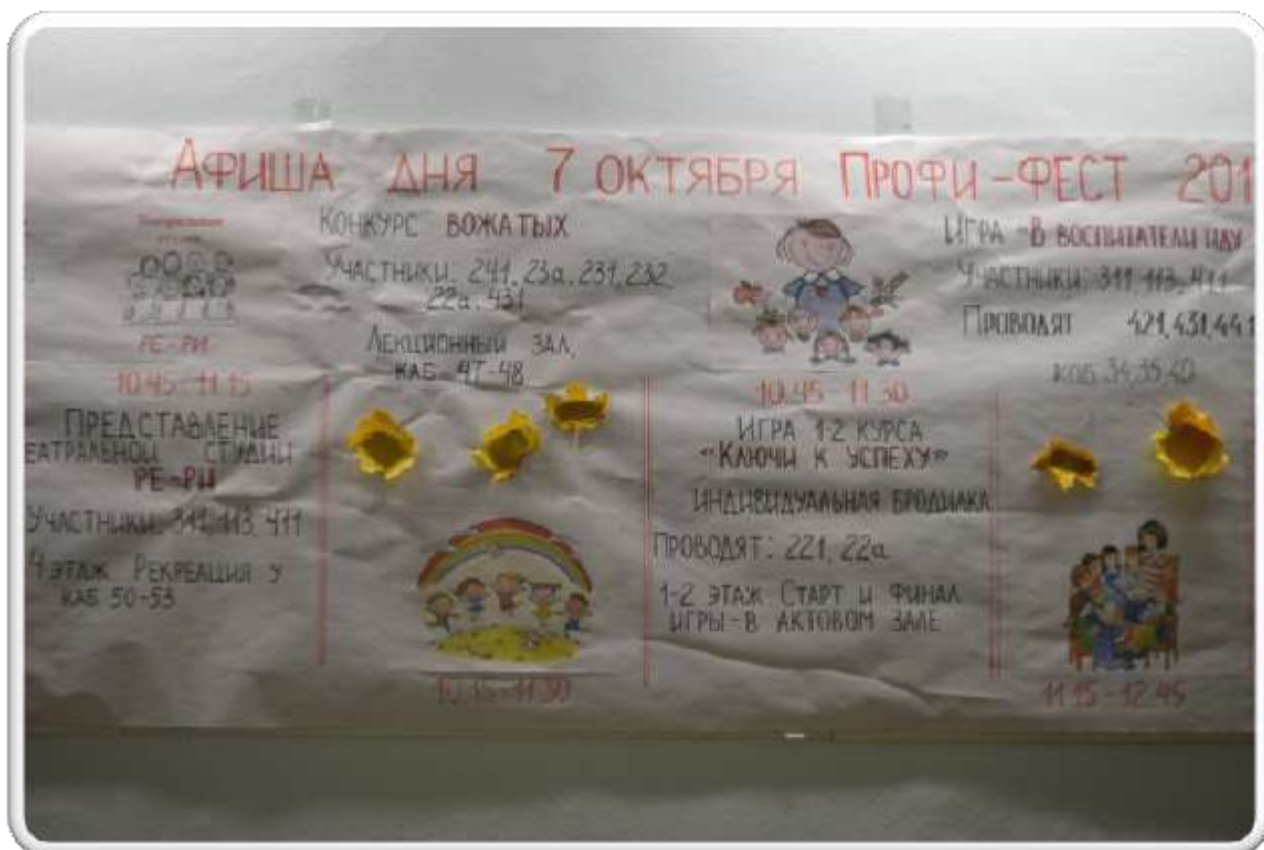 Афиша дня 7 октября Профи-фест 201
Театральная
студия
РЕ-РИ
10.45-11.15
Представление
еатральной студии
РЕ-РИ
Участники: 311, 113, 411
4 этаж Рекреация у
каб 50-53
Конкурс вожатых
Участники: 241, 23а, 231, 232,
22а, 431
Лекционный зал,
каб 47-48
10.45-11.30
Игра 1-2 курса
«Ключи к успеху»
индивидуальная бродилка
Проводят: 221, 22а
1-2 этаж Старт и финал
игры-в актовом зале
Игра В воспитатели иду
Участники: 311, 113, 411
Проводят 421, 431, 441
каб 34, 35, 40
11.15-12.45